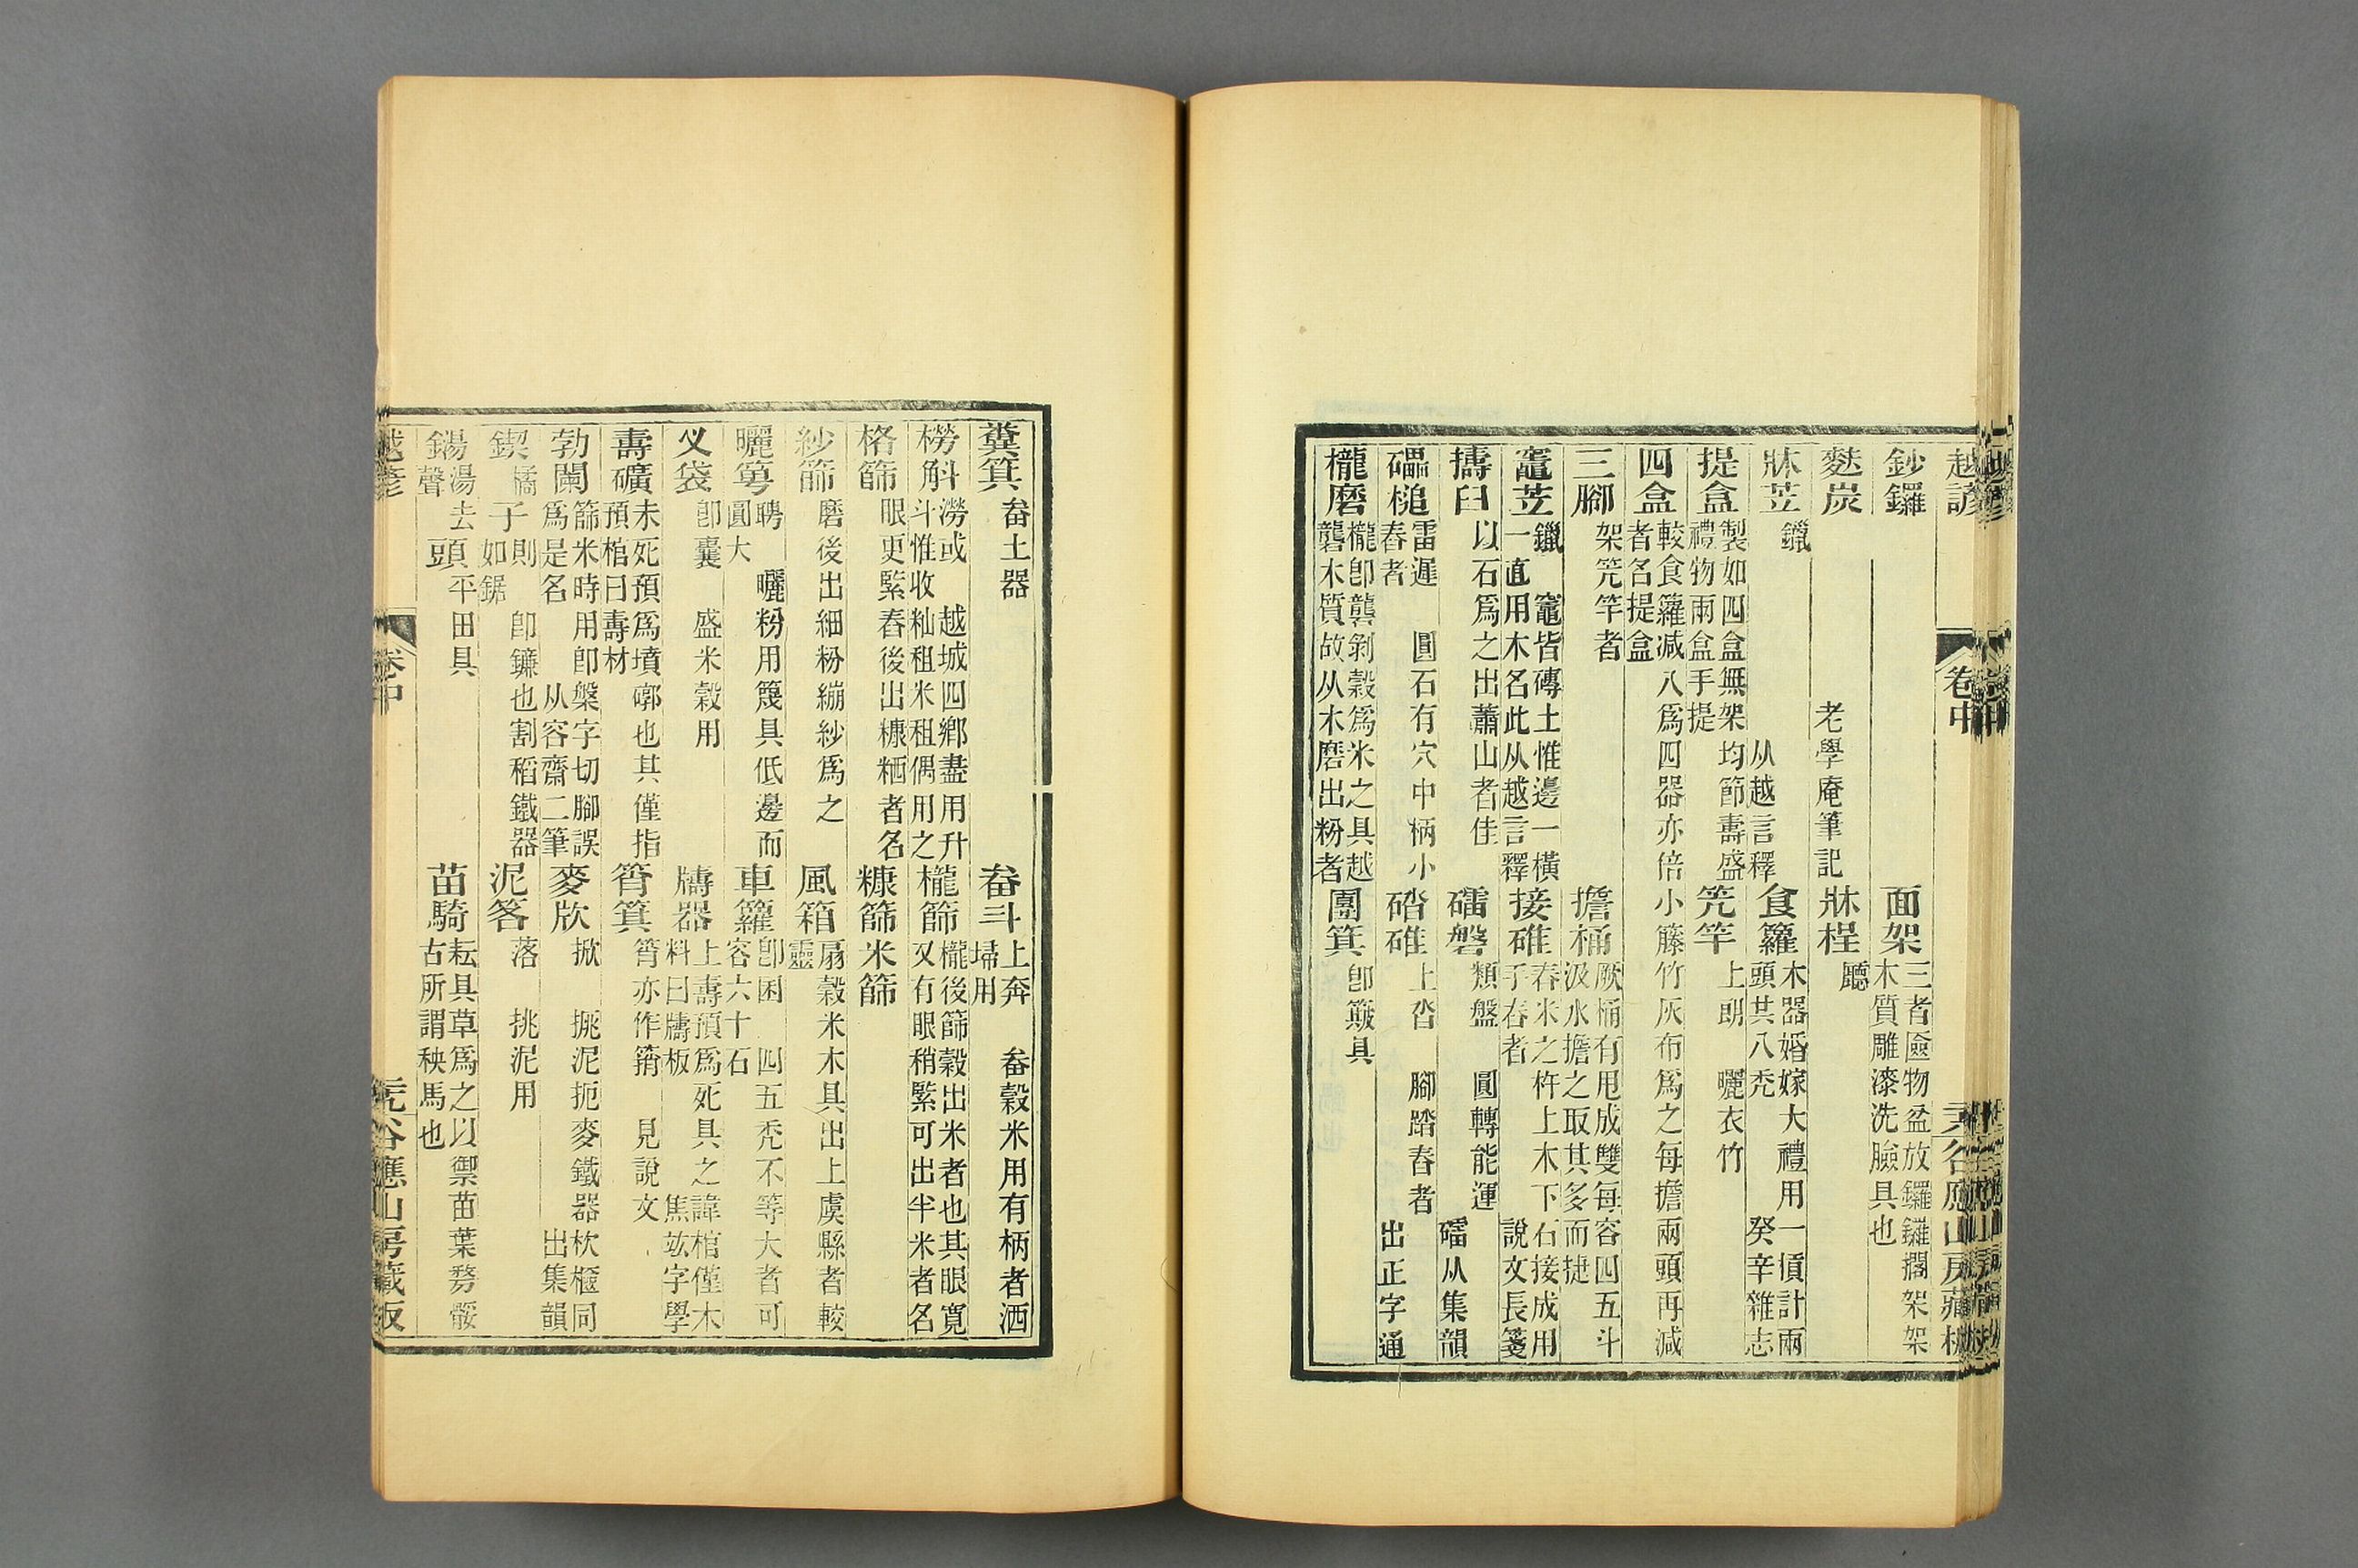 越諺 卷中 谷應山房藏板
鈔鑼 面架 三者匳物盆放鑼鑼擱架架木質雕漆洗臉具也
麩炭 老學庵筆記 牀桯 聽
牀苙 鑞 从越言釋 食籮 木器婚嫁大禮用一頂計兩頭其八禿 癸辛雜志
提盒 製如四盒無架均節壽盛禮物兩盒手提 筅竿 上朗 曬衣竹
四盒 較食籮減八爲四器亦倍小籐竹灰布爲之每擔兩頭再減者名提盒
三腳 架筅竿者 擔桶 厥桶有甩成雙每容四五斗汲水擔之取其多而捷
竈苙 鑞 竈皆磚土惟邊一橫一直用木名此从越言釋 接碓 舂米之杵上木下石接成用手舂者 說文長箋
擣臼 以石爲之出蕭山者佳 礌磐 類盤 圓轉能運 礌从集韻
礧槌 雷遲 圓石有穴中柄小舂者 碏碓 上沓 腳踏舂者 出正字通
櫳磨 櫳卽礱剝穀爲米之具越礱木質故从木磨出粉者 團箕 卽簸具
糞箕 畚土器 畚斗 上奔 畚穀米用有柄者洒埽用
橯斛 澇或 越城四鄉盡用升斗惟收籼租米租偶用之 櫳篩 櫳後篩穀出米者也其眼寬又有眼稍緊可出半米者名
格篩 眼更緊舂後出糠粞者名 糠篩 米篩
紗篩 磨後出細粉繃紗爲之 風箱 扇穀米木具出上虞縣者較靈
曬箄 聘 曬粉用篾具低邊而圓大 車籮 卽囷 四五禿不等大者可容六十石
叉袋 卽囊 盛米穀用 牘器 上壽預爲死具之諱棺僅木料曰牘板 焦竑字學
壽礦 未死預爲墳槨也其僅指預棺曰壽材 筲箕 筲亦作䈰 見說文
勃闌 篩米時用卽槃字切腳誤爲是名 从容齋二筆 麥㭠 掀 㨒泥扼麥鐵器杴櫃同 出集韻
鍥 橘 子 則如鋸 卽鐮也割稻鐵器 泥笿 落 挑泥用
鐋 湯去聲 頭 平田具 苗騎 耘具草爲之以禦苗葉剺骽古所謂秧馬也
越諺 卷中 谷應山房藏板